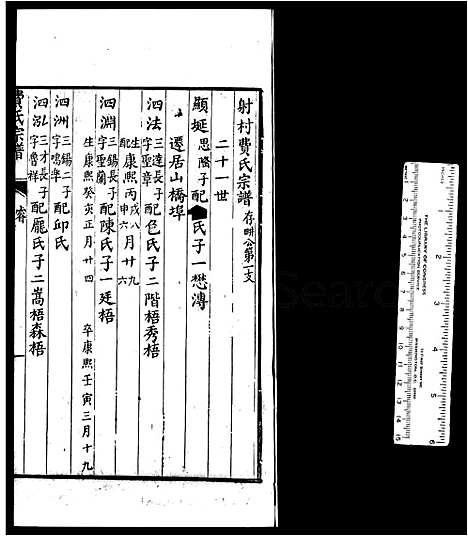 射村費氏宗譜 存畊公第二支
二十一世
顯埏 思隆子 配 氏子一懋漙
遷居山橋埠
泗法 三達長子 字聖章 配包氏子二階梧秀梧
生康熙丙戌八月廿九
生康熙丙申六月廿六
泗淵 三錫長子 字聖蘭 配陳氏子一廷梧
生康熙癸亥正月廿四 卒康熙壬寅三月十九
泗洲 三錫二子 字鳴臯 配邱氏
泗泓 三才長子 字魯祥 配龐氏子二嵩梧森梧
費氏宗譜
THE LIBRARY OF CONGRESS